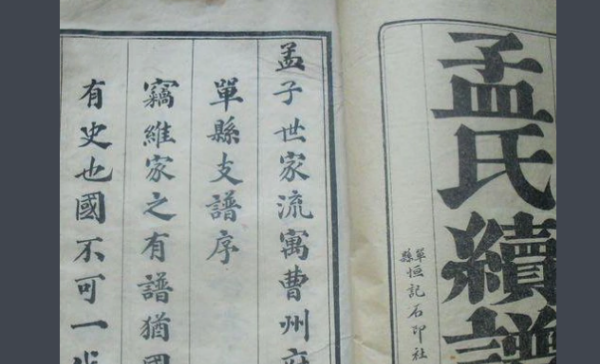 孟氏續譜
單縣恒記石印社
孟子世家流寓曹州府
單縣支譜序
竊維家之有譜猶國
有史也國不可一